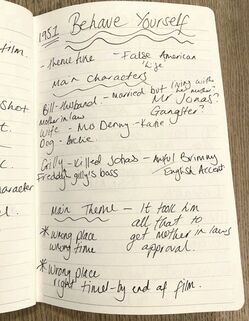 film.
shot
t.
e
character
l.
1951 Behave Yourself
- theme tune - False American
life
Main Characters
Bill - Husband - married but living with
her mother?
Mother in law
Mr Jonas?
Gangster?
Wife - Mrs Denny - Kate
Dog - Archie
Gilly - Killed Johas - Awful Briminy
English Accent
Freddy gilly's bass
Main Theme - It took him
all that to
get mother in laws
approval.
* wrong place
wrong time
* Wrong place
right time! - by end of film.